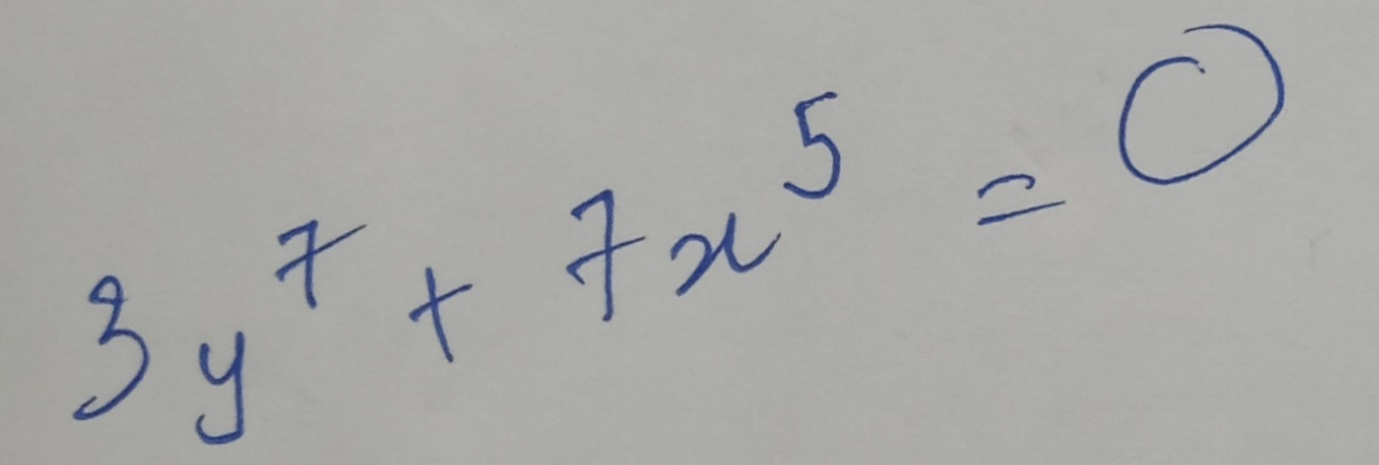 3y⁷ + 7x⁵ = 0